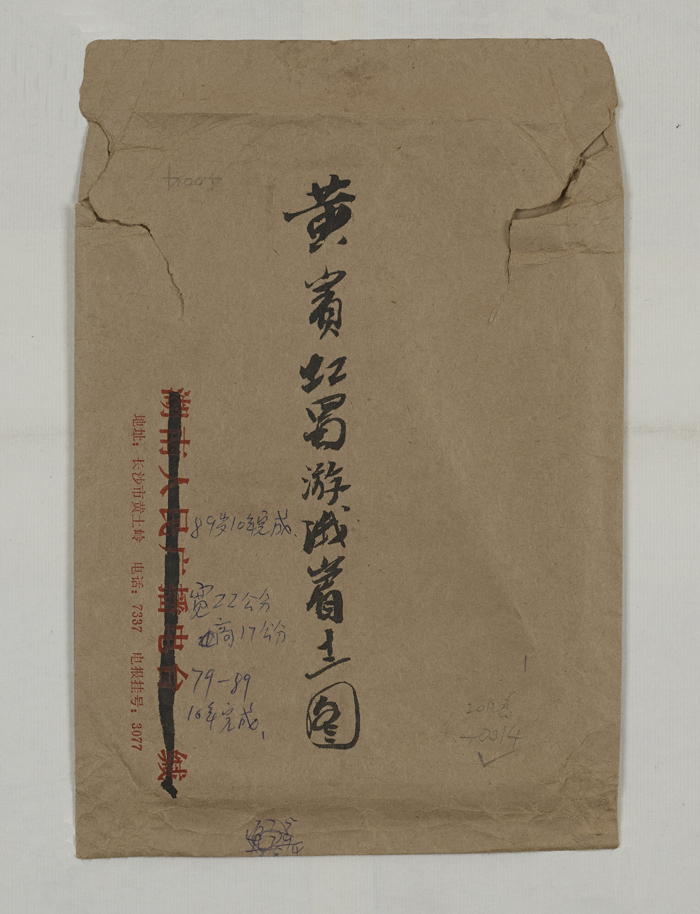 4004
黄宾虹蜀游峨着十二图
湖南人民广播电台 缄
地址：长沙市黄土岭 电话：7337 电报挂号：3077
89岁10年完成、
宽22公分
高17公分
79－89
10年完成、
-0014